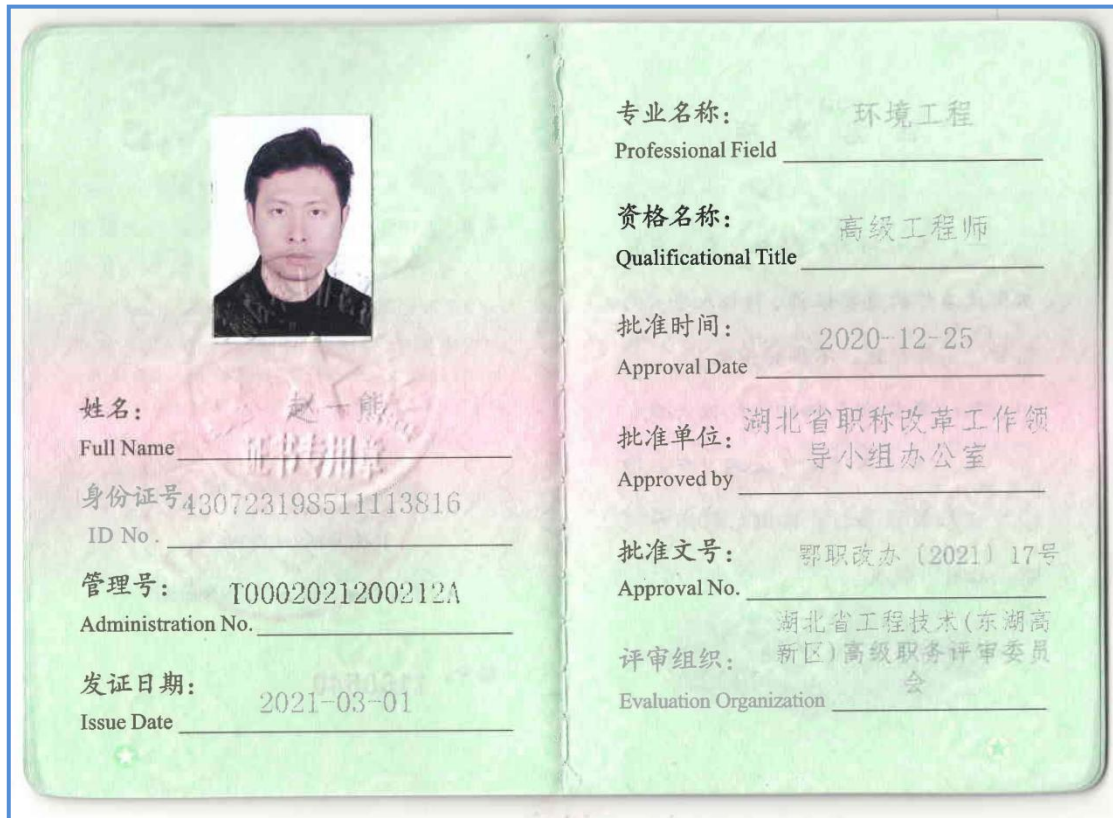 姓名: 赵一熊
Full Name
证书专用章
身份证号430723198511113816
ID No .
管理号: T0002021200212A
Administration No.
发证日期: 2021-03-01
Issue Date
专业名称: 环境工程
Professional Field
资格名称: 高级工程师
Qualificational Title
批准时间: 2020-12-25
Approval Date
批准单位: 湖北省职称改革工作领
导小组办公室
Approved by
批准文号: 鄂职改办〔2021〕17号
Approval No.
湖北省工程技术(东湖高
评审组织: 新区)高级职务评审委员
会
Evaluation Organization